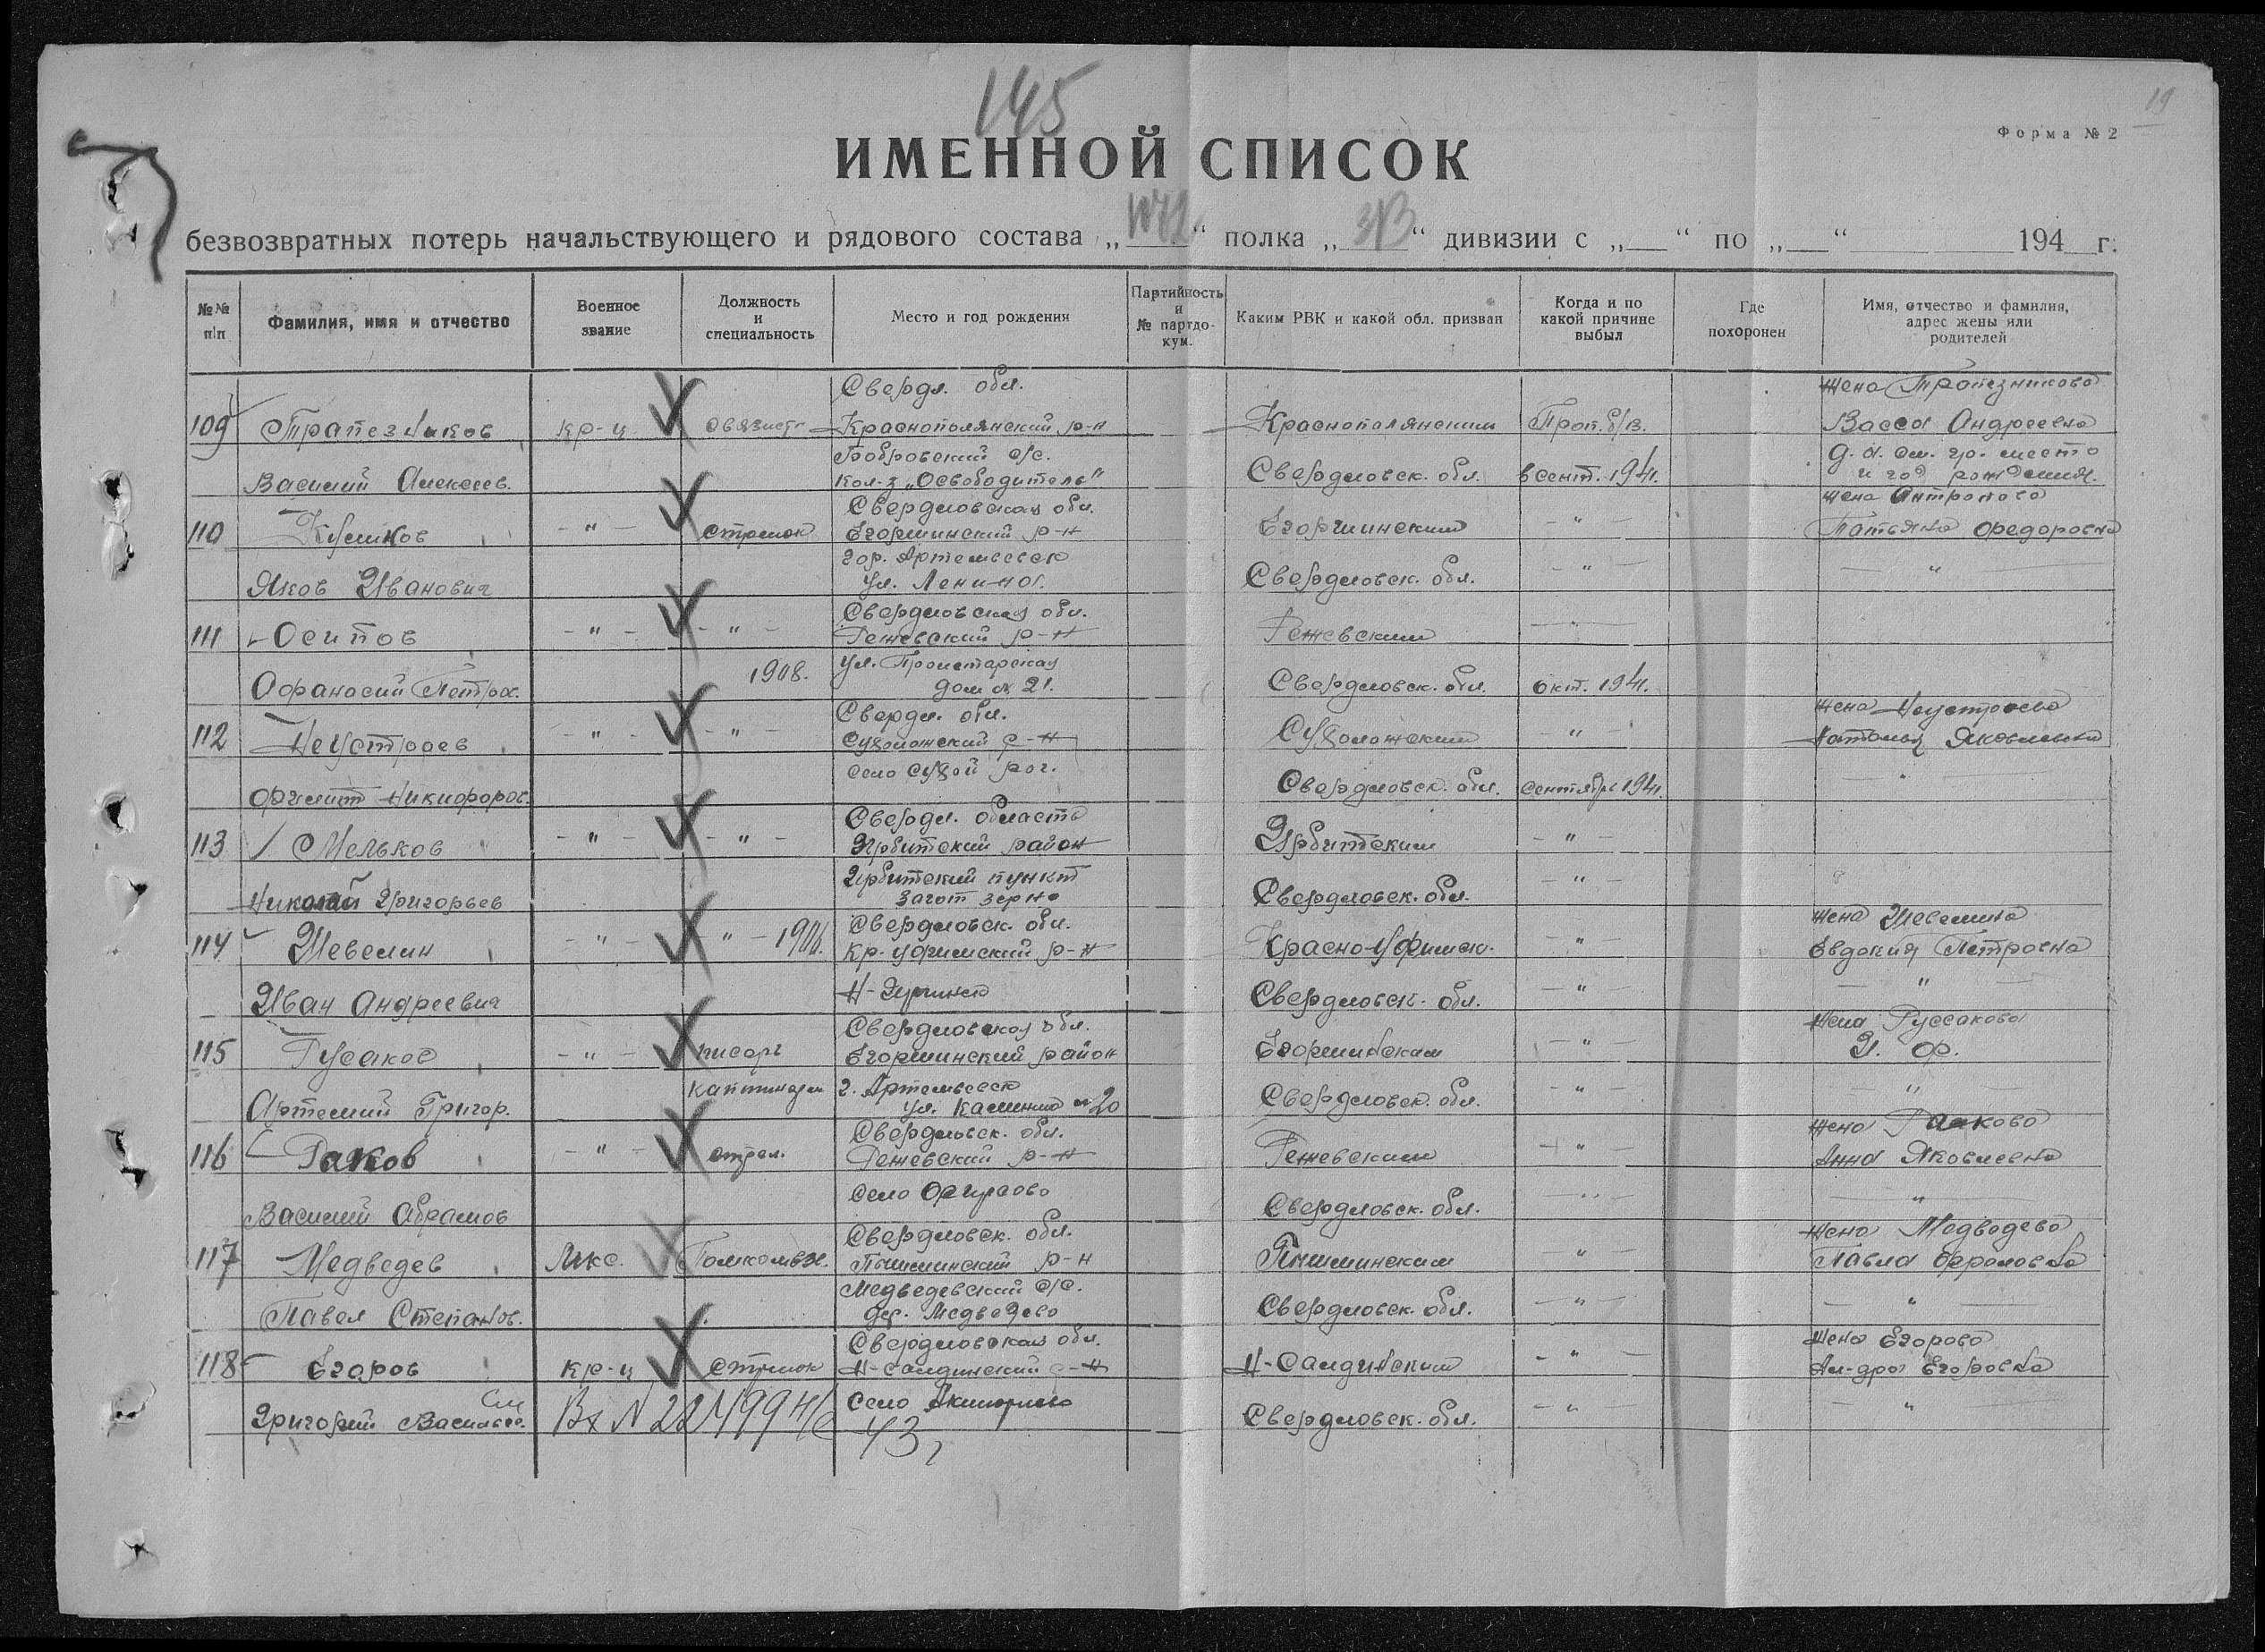 145
19
Форма № 2
ИМЕННОЙ СПИСОК
безвозвратных потерь начальствующего и рядового состава „ “ полка „ “ дивизии с „ “ по „ “ 194 г.
№№ п/п
Фамилия, имя и отчество
Военное звание
Должность и специальность
Место и год рождения
Партийность и № партдокум.
Каким РВК и какой обл. призван
Когда и по какой причине выбыл
Где похоронен
Имя, отчество и фамилия, адрес жены или родителей
Свердл. обл. жена Трапезникова
109 Трапезников кр-ц связист Краснополянский р-н Краснополянским Проп. б/в. Васса Андреевна
Бобровский с/с. д. а. см. гр. место
Василий Алексеев. кол-з „Освободитель“ Свердловск. обл. в сент. 1941. и год рождения.
Свердловская обл. жена Антропова
110 - " - стрелок Егоршинский р-н Егоршинским - " - Татьяна Федоровна
гор. Артемьевск
Яков Иванович ул. Ленина. Свердловск. обл. - " - "
Свердловская обл.
111 Осипов - " - - " - Режевский р-н Режевским - " -
1908. ул. Пролетарская
Афанасий Петров. дом № 21. Свердловск. обл. окт. 1941.
Свердл. обл. жена Неустроева
112 Неустроев - " - - " - Сухоложский р-н Сухоложским " - Наталья Яковлевна
село Сухой лог.
Филипп Никифоров. Свердловск. обл. сентябрь 1941. "
Свердл. область
113 Мельков - " - - " - Ирбитский район Ирбитским - " -
Ирбитский пункт - " -
Николай Григорьев Загот зерно Свердловск. обл.
Свердловск. обл. жена Шевелина
114 Шевелин - " - " - Кр. уфимский р-н Красно-Уфимск. - " Евдокия Петровна
Иван Андреевич Свердловск. обл. - " "
Свердловская обл. жена Руссакова
115 Русаков - " - писарь Егоршинский район Егоршинским - " - И. Ф.
г. Артемьевск - " - "
Артемий Григор. ул. Калинина № 20 Свердловск. обл.
Свердловск. обл. жена Ракова
116 Раков - " - стрел. Режевский р-н Режевским " - Анна Яковлевна
село "
Василий Абрамов Свердловск. обл.
Свердловск. обл. жена Медведева
117 Медведев Мл.к-с. Помкомвзв. Пышминский р-н Пышминским - " - Павла Фроловна
Медведевский с/с.
Павел Степанов. дер. Медведево Свердловск. обл. - " - "
Свердловская обл. жена Егорова
118 Егоров кр-ц стрелок Н-Салдинский р-н Н-Салдинским - " - Ал-дра Егоровна
см село
Григорий Васильев. Вх N 43 Свердловск. обл. - " - "